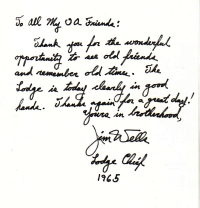 To All My OA Friends:
Thank you for the wonderful
opportunity to see old friends
and remember old times. The
Lodge is today clearly in good
hands. Thanks again for a great day!
Yours in brotherhood,
Jim Wells
Lodge Chief
1965